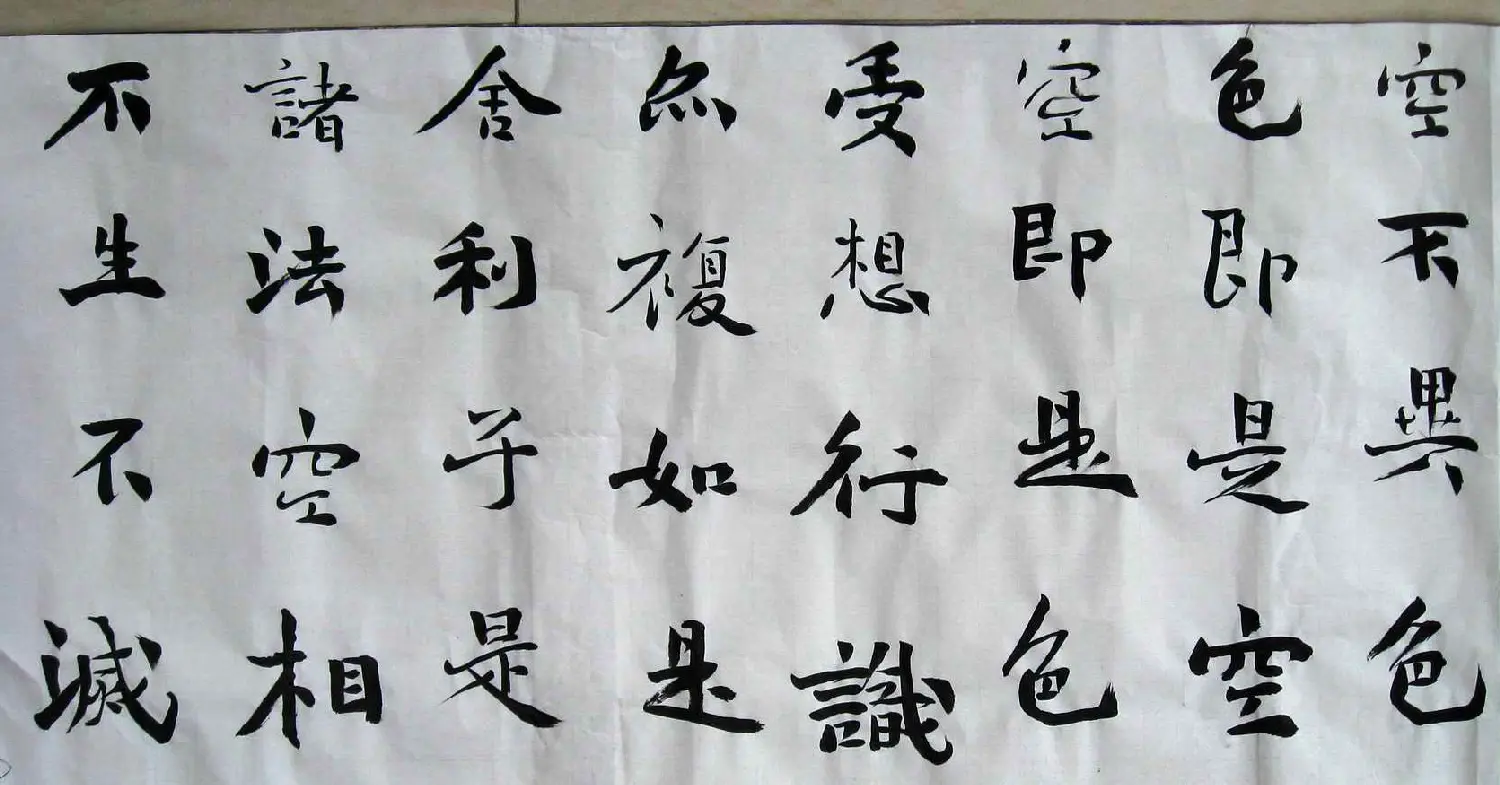 空不異色
色即是空
空即是色
受想行識
亦複如是
舍利子是
諸法空相
不生不滅